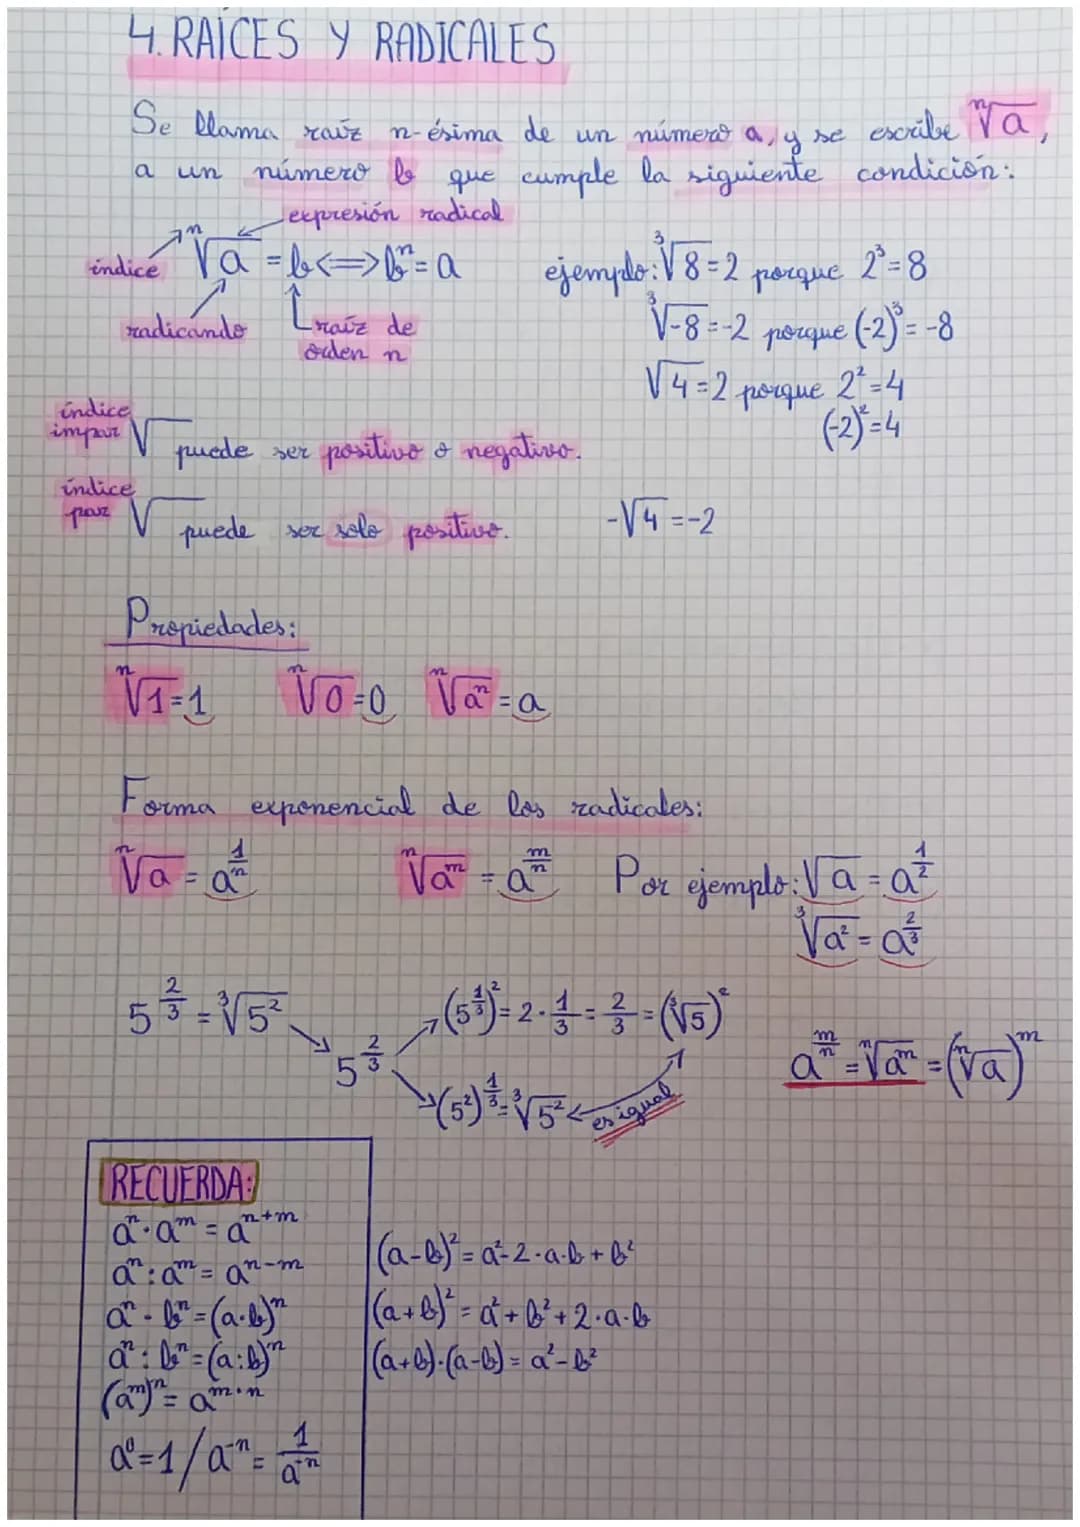 4. RAÍCES Y RADICALES
Se llama raíz n-ésima de un número a, y se escribe ⁿ√a,
a un número b que cumple la siguiente condición:
expresión radical
índice ⁿ√a = b <=> bⁿ = a
radicando
raíz de
orden n
ejemplo: ³√8 = 2 porque 2³ = 8
³√-8 = -2 porque (-2)³ = -8
√4 = 2 porque 2² = 4
(-2)² = 4
índice
impar √ puede ser positivo o negativo.
índice
par √ puede ser solo positivo.
-√4 = -2
Propiedades:
ⁿ√1 = 1 ⁿ√0 = 0 ⁿ√aⁿ = a
Forma exponencial de los radicales:
ⁿ√a = a^(1/n) ⁿ√a^m = a^(m/n) Por ejemplo: √a = a^(1/2)
³√a² = a^(2/3)
5^(2/3) = ³√5²
5^(2/3)
(5^(1/3))² = 2 · 1/3 = 2/3 = (³√5)²
(5²)^(1/3) = ³√5²
es igual
a^(m/n) = ⁿ√a^m = (ⁿ√a)^m
RECUERDA:
aⁿ · a^m = a^(n+m)
aⁿ : a^m = a^(n-m)
aⁿ · bⁿ = (a·b)ⁿ
aⁿ : bⁿ = (a:b)ⁿ
(a^m)ⁿ = a^(m·n)
a⁰ = 1 / a^(-n) = 1/a^(-n)
(a-b)² = a² - 2·a·b + b²
(a+b)² = a² + b² + 2·a·b
(a+b)·(a-b) = a² - b²